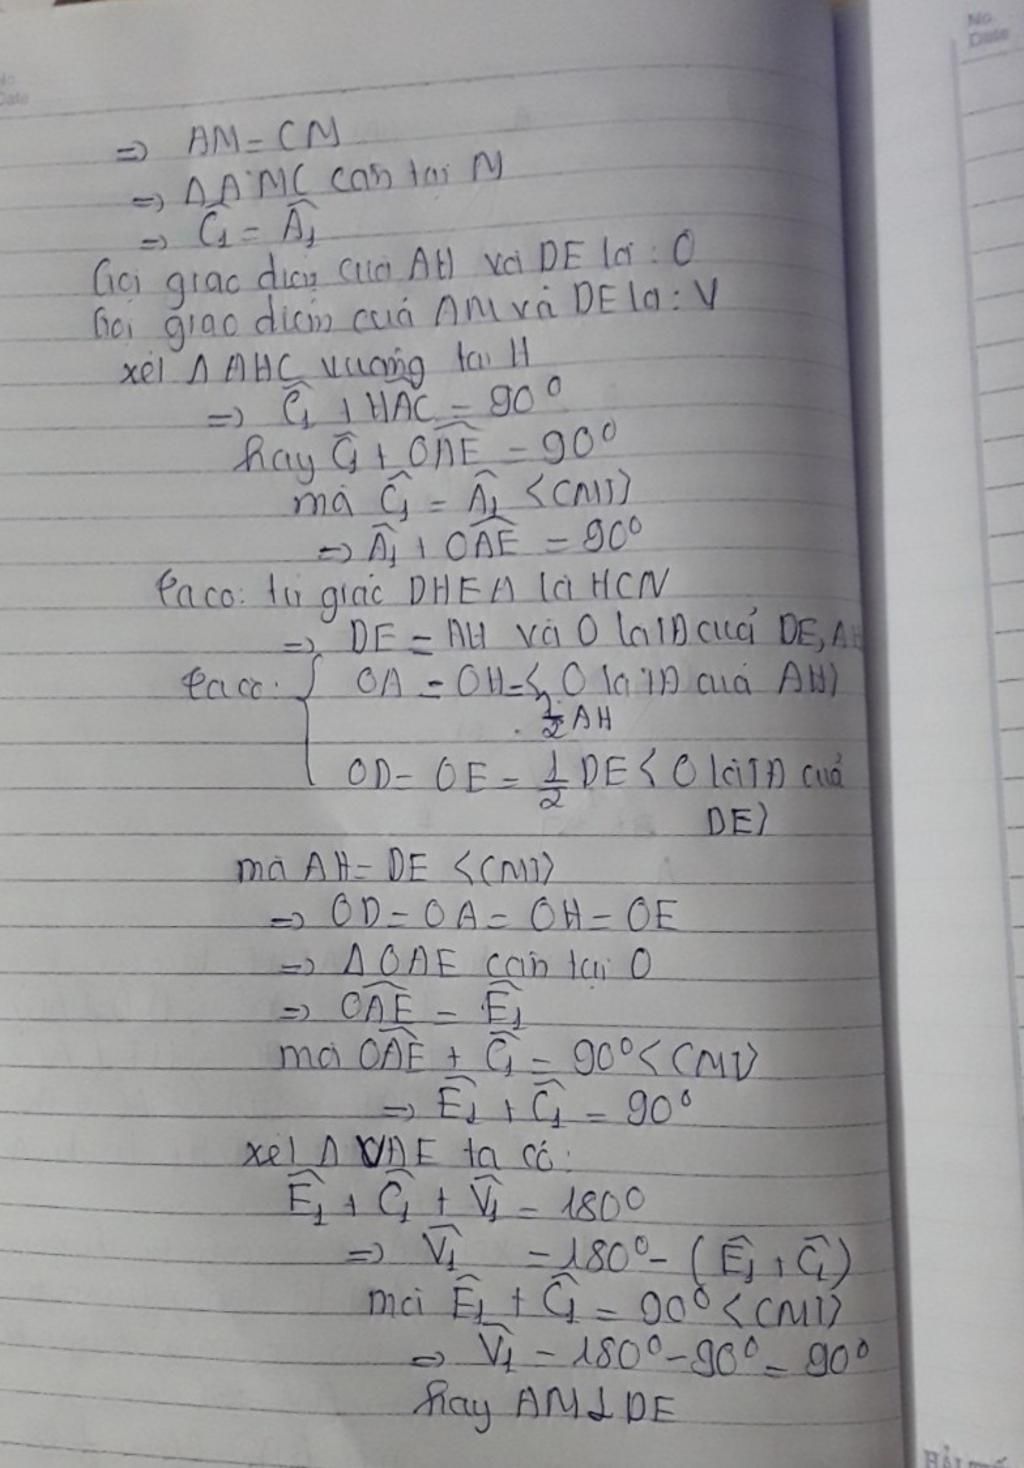 No.
Date
No
Date
=> AM = CM
=> ΔAMC cân tại M
=> Ĉ₁ = Â₁
Gọi giao điểm của AH và DE là : O
Gọi giao điểm của AM và DE là : V
xét Δ AHC vuông tại H
=> Ĉ₁ + HÂC = 90°
hay Ĉ₁ + OÂE = 90°
mà Ĉ₁ = Â₁ <CMT>
=> Â₁ + OÂE = 90°
Ta có: tứ giác DHEA là HCN
=> DE = AH và O là TĐ của DE, AH
Ta có: { OA = OH = < O là TĐ của AH)
½ AH
OD = OE = ½ DE < O là TĐ của
DE)
mà AH = DE <CMT>
=> OD = OA = OH = OE
=> Δ OAE cân tại O
=> OÂE = Ê₁
mà OÂE + Ĉ₁ = 90° <CMT>
=> Ê₁ + Ĉ₁ = 90°
xét Δ VAE ta có:
Ê₁ + Ĉ₁ + V̂₁ = 180°
=> V̂₁ = 180° - (Ê₁ + Ĉ₁)
mà Ê₁ + Ĉ₁ = 90° <CMT>
=> V̂₁ = 180° - 90° = 90°
hay AM ⊥ DE